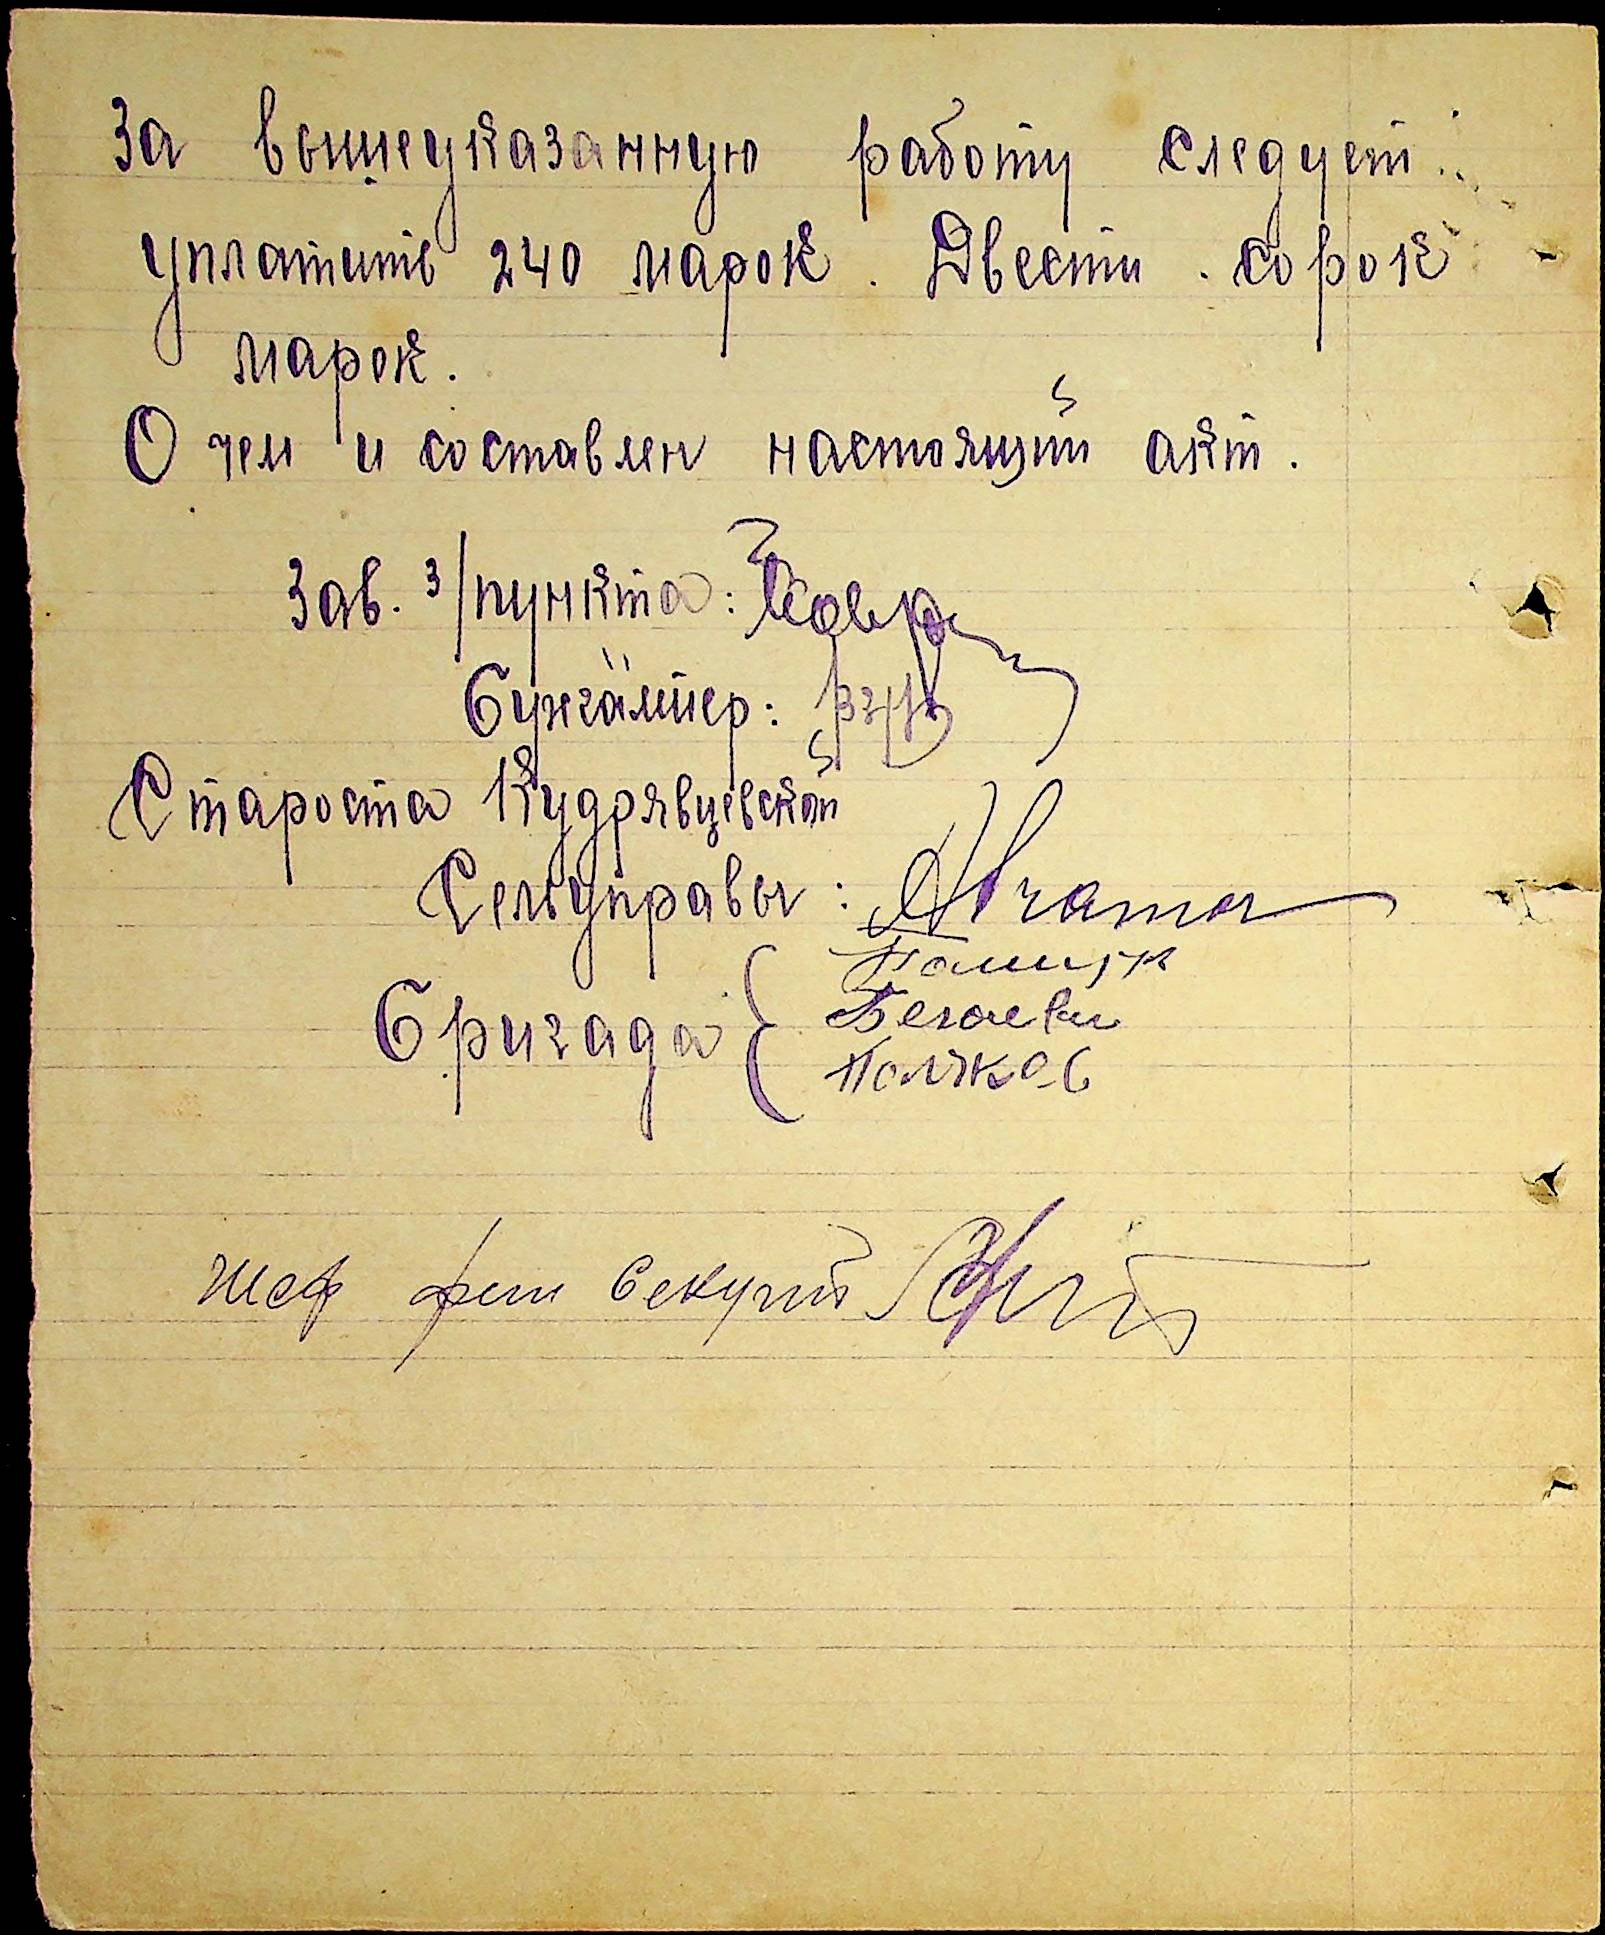 За вышеуказанную работу следует
уплатить 240 марок. Двести сорок
марок.
О чем и составлен настоящий акт.
Зав. з/пункта:
Бухгалтер:
Староста Кудрявцевской
Сельуправы:
Бригада {
Поляков
Шеф фин